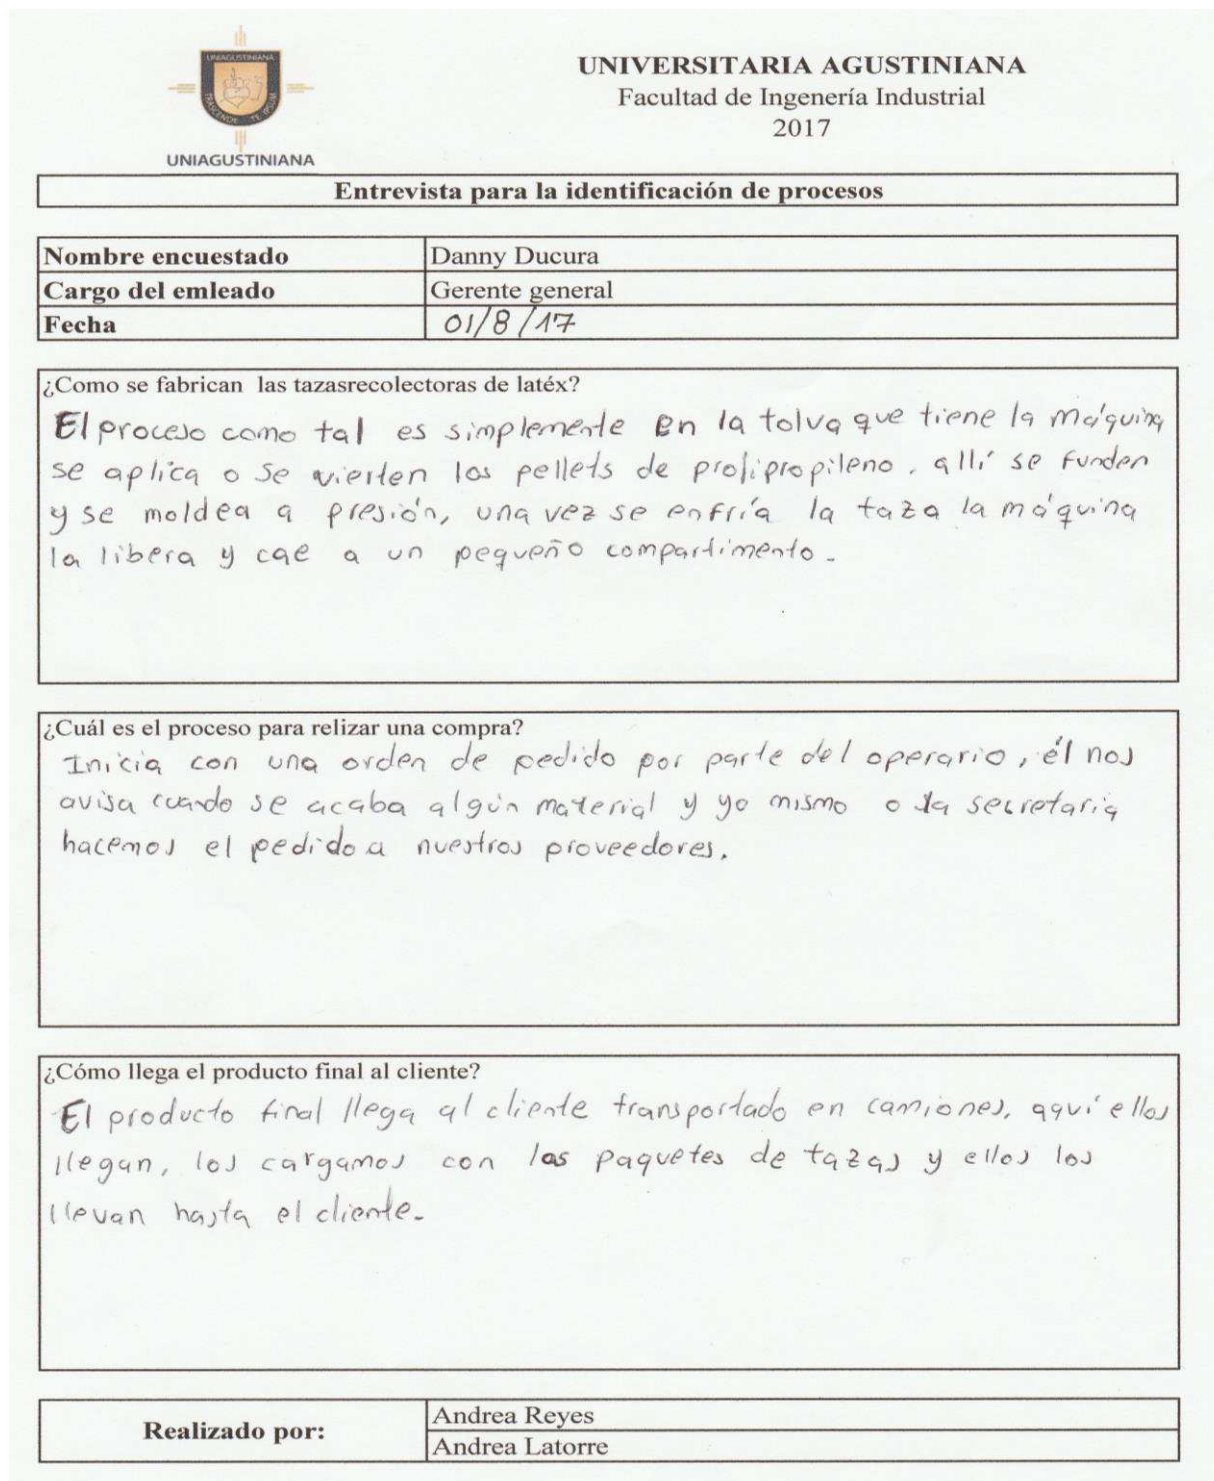 UNIAGUSTINIANA
TRASCENDE TE IPSUM
UNIAGUSTINIANA
UNIVERSITARIA AGUSTINIANA
Facultad de Ingenería Industrial
2017
Entrevista para la identificación de procesos
Nombre encuestado Danny Ducura
Cargo del emleado Gerente general
Fecha 01/8/17
¿Como se fabrican las tazasrecolectoras de latéx?
El proceso como tal es simplemente en la tolva que tiene la máquina
se aplica o se vierten los pellets de prolipropileno, allí se funden
y se moldea a presión, una vez se enfría la taza la máquina
la libera y cae a un pequeño compartimento.
¿Cuál es el proceso para relizar una compra?
Inicia con una orden de pedido por parte del operario, él nos
avisa cuando se acaba algún material y yo mismo o la secretaria
hacemos el pedido a nuestros proveedores.
¿Cómo llega el producto final al cliente?
El producto final llega al cliente transportado en camiones, aquí ellos
llegan, los cargamos con los paquetes de tazas y ellos los
llevan hasta el cliente.
Realizado por: Andrea Reyes
Andrea Latorre